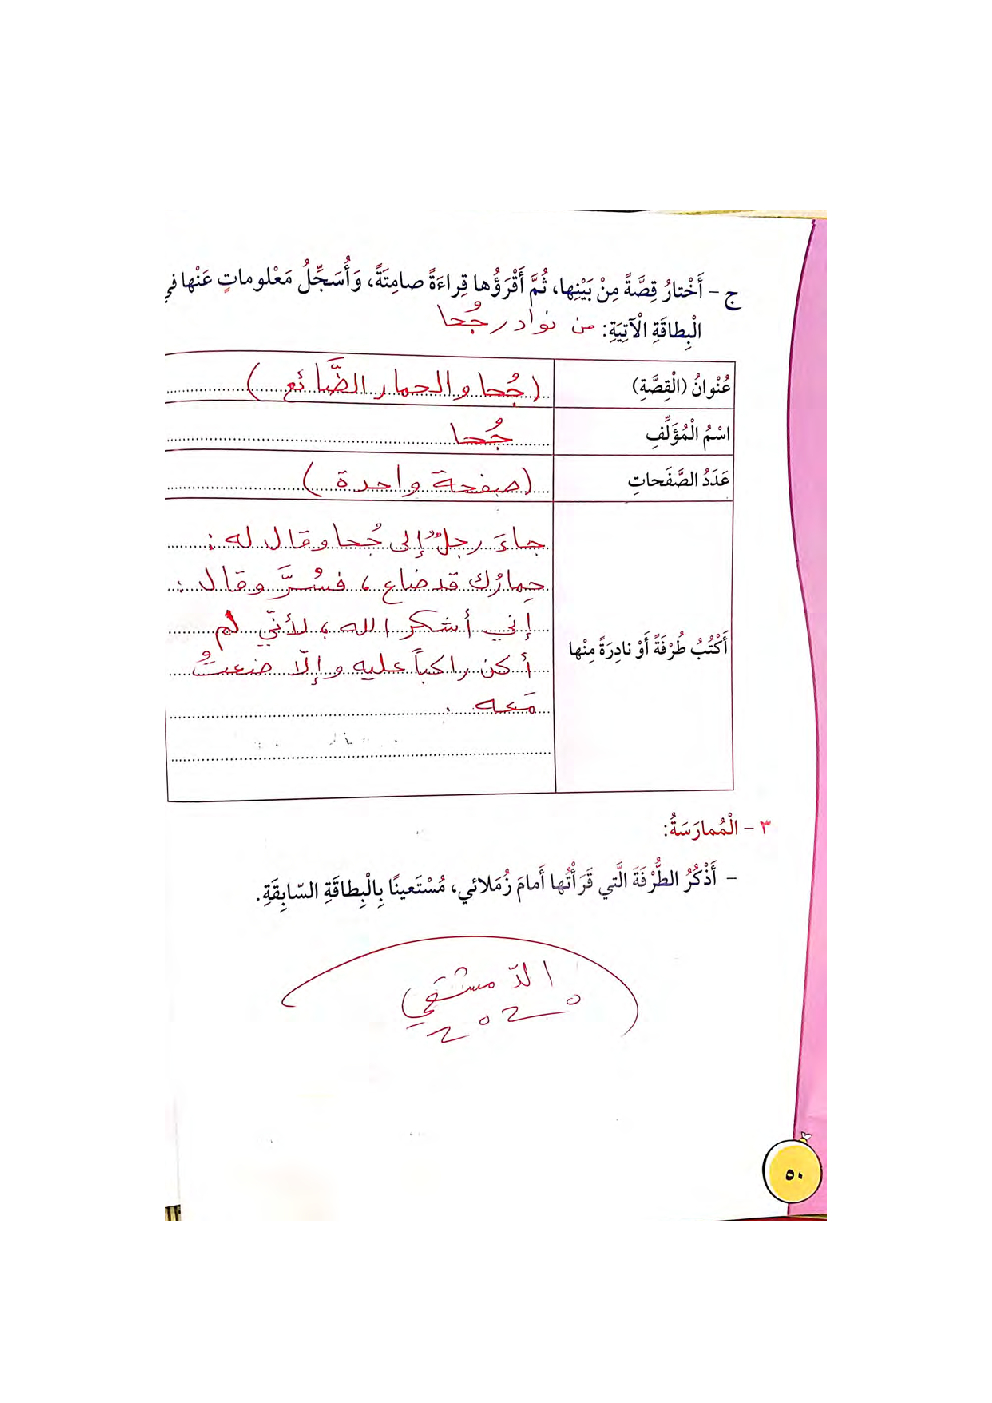 ج - أَخْتارُ قِصَّةً مِنْ بَيْنِها، ثُمَّ أَقْرَؤُها قِراءَةً صامِتَةً، وَأُسَجِّلُ مَعْلوماتٍ عَنْها في
الْبِطاقَةِ الْآتِيَةِ: من نوادر جُحا
عُنْوانُ (الْقِصَّةِ) (جُحا والحمار الضَّائع)
اسْمُ الْمُؤَلِّفِ جُحا
عَدَدُ الصَّفَحاتِ (صفحة واحدة)
أَكْتُبُ طُرْفَةً أَوْ نادِرَةً مِنْها
جاءَ رجلٌ إلى جُحا وقال له :
حِمارُك قد ضاع ، فسُرَّ وقال :
إني أشكر الله ، لأنّي لم
أكن راكباً عليه وإلّا ضعتُ
مَعه .
٣ - الْمُمارَسَةُ:
- أَذْكُرُ الطُّرْفَةَ الَّتي قَرَأْتُها أَمامَ زُمَلائي، مُسْتَعينًا بِالْبِطاقَةِ السّابِقَةِ.
الدّمشقي
٢٠٢٠
٥٠